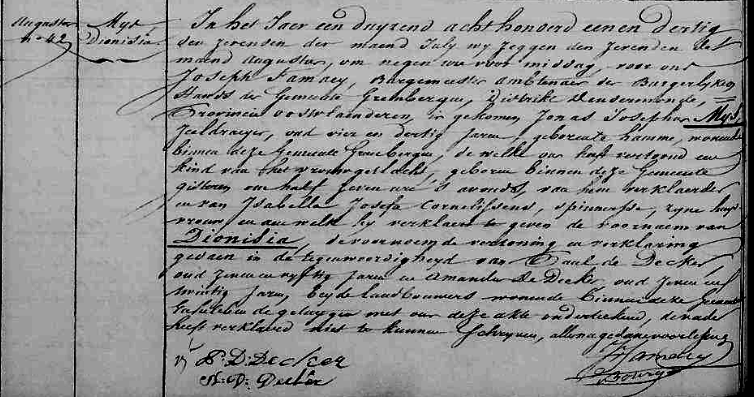 Augustus
No 42
Mys
Dionisia
In het Jaer een duyzend acht honderd eenen dertig
den zevensten der maend July wy zeggen den zevenden der
maend Augustus, om negen uer voor middag, voor ons
Joseph Famaey, Burgemeester Ambtenaer der Burgerlyken
Stands der Gemeente Grembergen, Distrikt Dendermonde,
Provincie oostvlaenderen, is gekomen Jonas Josephus Mys,
oud vier en dertig Jaren, geboren te hamme, wonende
binnen deze Gemeente Grembergen, de welke ons heeft vertoond een
kind van het vrouwgeslacht, geboren binnen deze Gemeente
gisteren om half seven uren s'avonds, van hem verklaerder
en van Isabella Josefa Cornelissens, spinnesse, zyne huys
vrouw en aen welk hy verklaert te geven de voornaem van
Dionisia, de voornoemde vertooning en verklaring
gedaen in de tegenwoordigheyd van Paul de Decker,
oud zeven en vyftig Jaren en Amandus De Decker, oud zeven en
twintig Jaren, beyde landbouwers wonende binnen deze Gemeente
de getuygen met ons deze akte onderteekend, de vader
heeft verklaerd niet te kunnen Schryven, alles na gedane voorlezing
P. D: Decker
A. D: Decker
Famaey
Bourgm